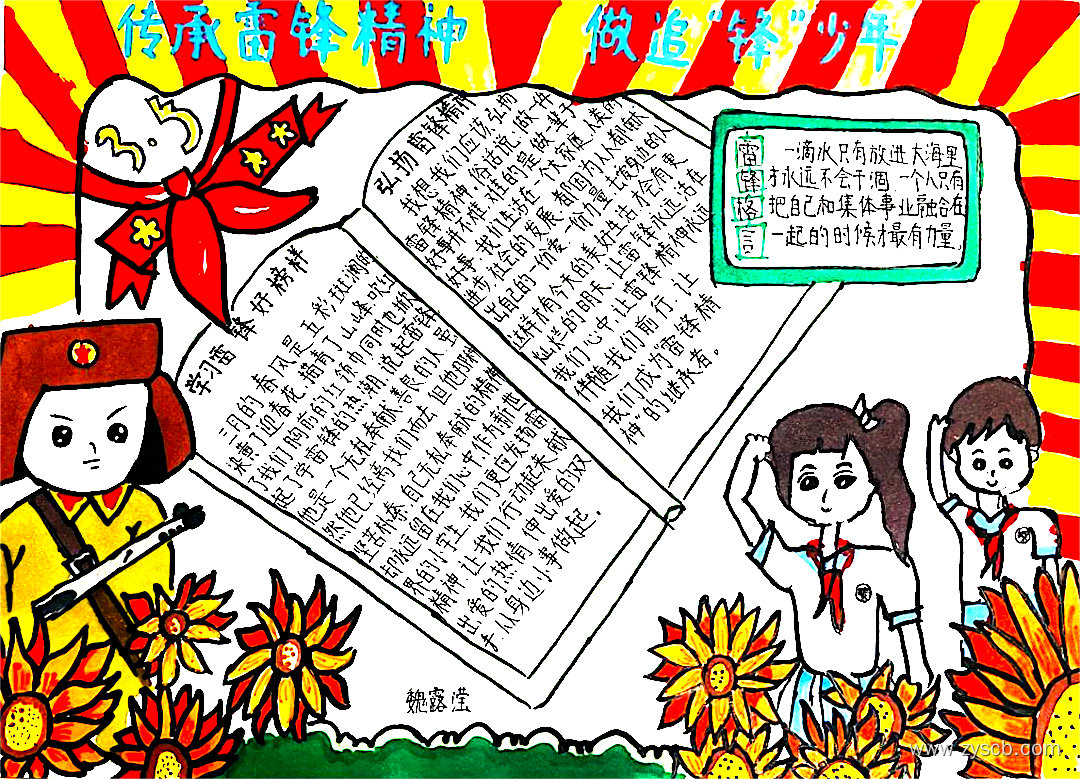 传承雷锋精神 做追“锋”少年
弘扬雷锋精神
我想我们应该弘扬
雷锋精神,俗话说,做一件
好事并不难,难的是做一辈子
好事,我们生活在一个大家庭,人类的
进步,社会的发展,都因为人人都献
出自己的一份爱,一份力量,身边的人
这样有今天的美好生活,才会有更
灿烂的明天,让雷锋永远活在
我们心中,让雷锋精神永远
伴随我们前行,让
我们成为雷锋精
神“的继承者。
学习雷锋好榜样
三月的春风是五彩斑斓的
染黄了迎春花,描青了山峰,吹
了我们胸前的红领巾,同时也掀
起了学雷锋的热潮,说起雷锋
他是一个无私奉献,善良的人,虽
然他已经离我们而去,但他那种
坚苦朴素,自己无私奉献的精神
却永远留在我们心中,作为新世
界的小学生,我们更应发扬雷
精神,让我们行动起来,献
出爱的热情,伸出爱的双
手,从身边小事做起。
雷锋格言
一滴水只有放进大海里
才永远不会干涸,一个人只有
把自己和集体事业融合在
一起的时候才最有力量,
魏露滢
www.zyscb.com